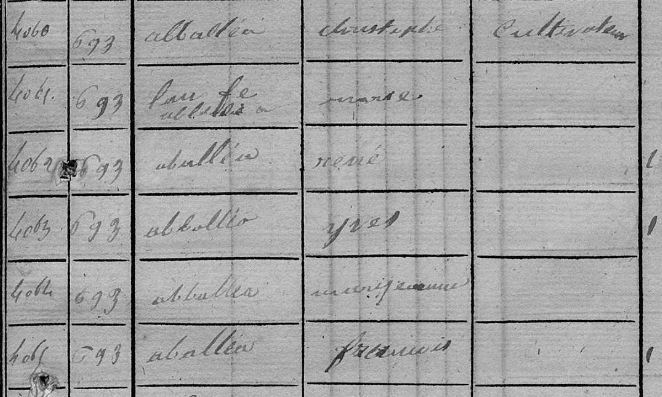 4060 693 aballéa christophe Cultivateur
4061. 693 fe
aballéa marie
4062 693 aballéa rené 1
4063 693 aballéa yves 1
4064 693 aballéa marijeanne
406 693 aballéa francois 1